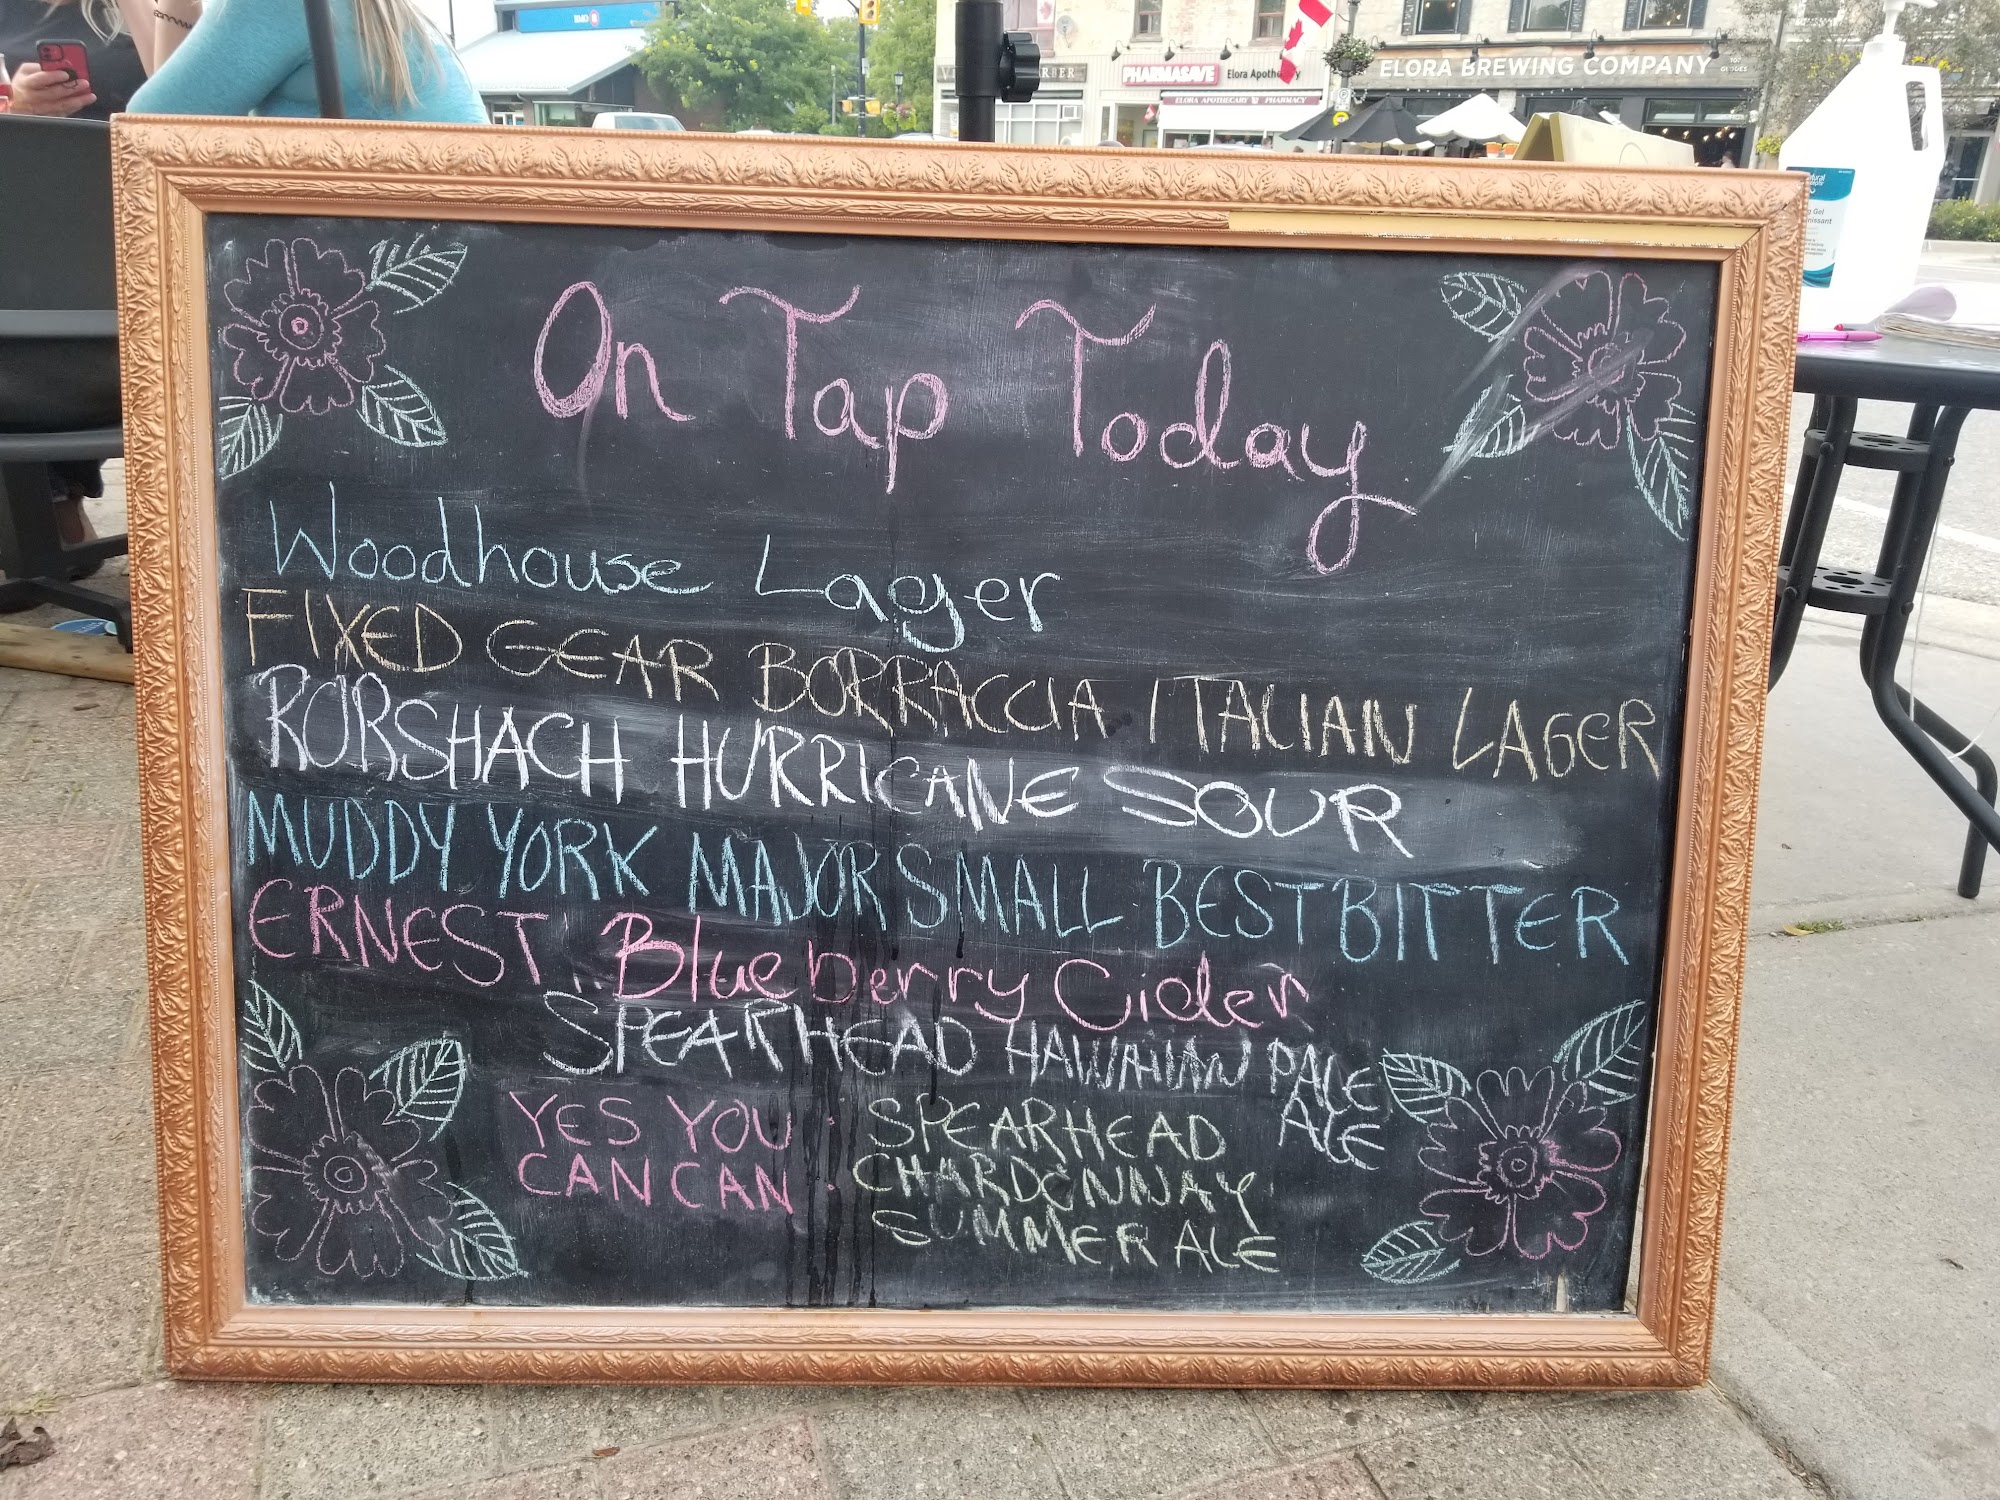 BMO
PHARMASAVE
Elora Apothecary
ELORA APOTHECARY PHARMACY
ELORA BREWING COMPANY
On Tap Today
Woodhouse Lager
FIXED GEAR BORRACCIA ITALIAN LAGER
RORSHACH HURRICANE SOUR
MUDDY YORK MAJOR SMALL BEST BITTER
ERNEST: Blueberry Cider
SPEARHEAD HAWAIIAN PALE
ALE
YES YOU : SPEARHEAD
CAN CAN : CHARDONNAY
SUMMER ALE